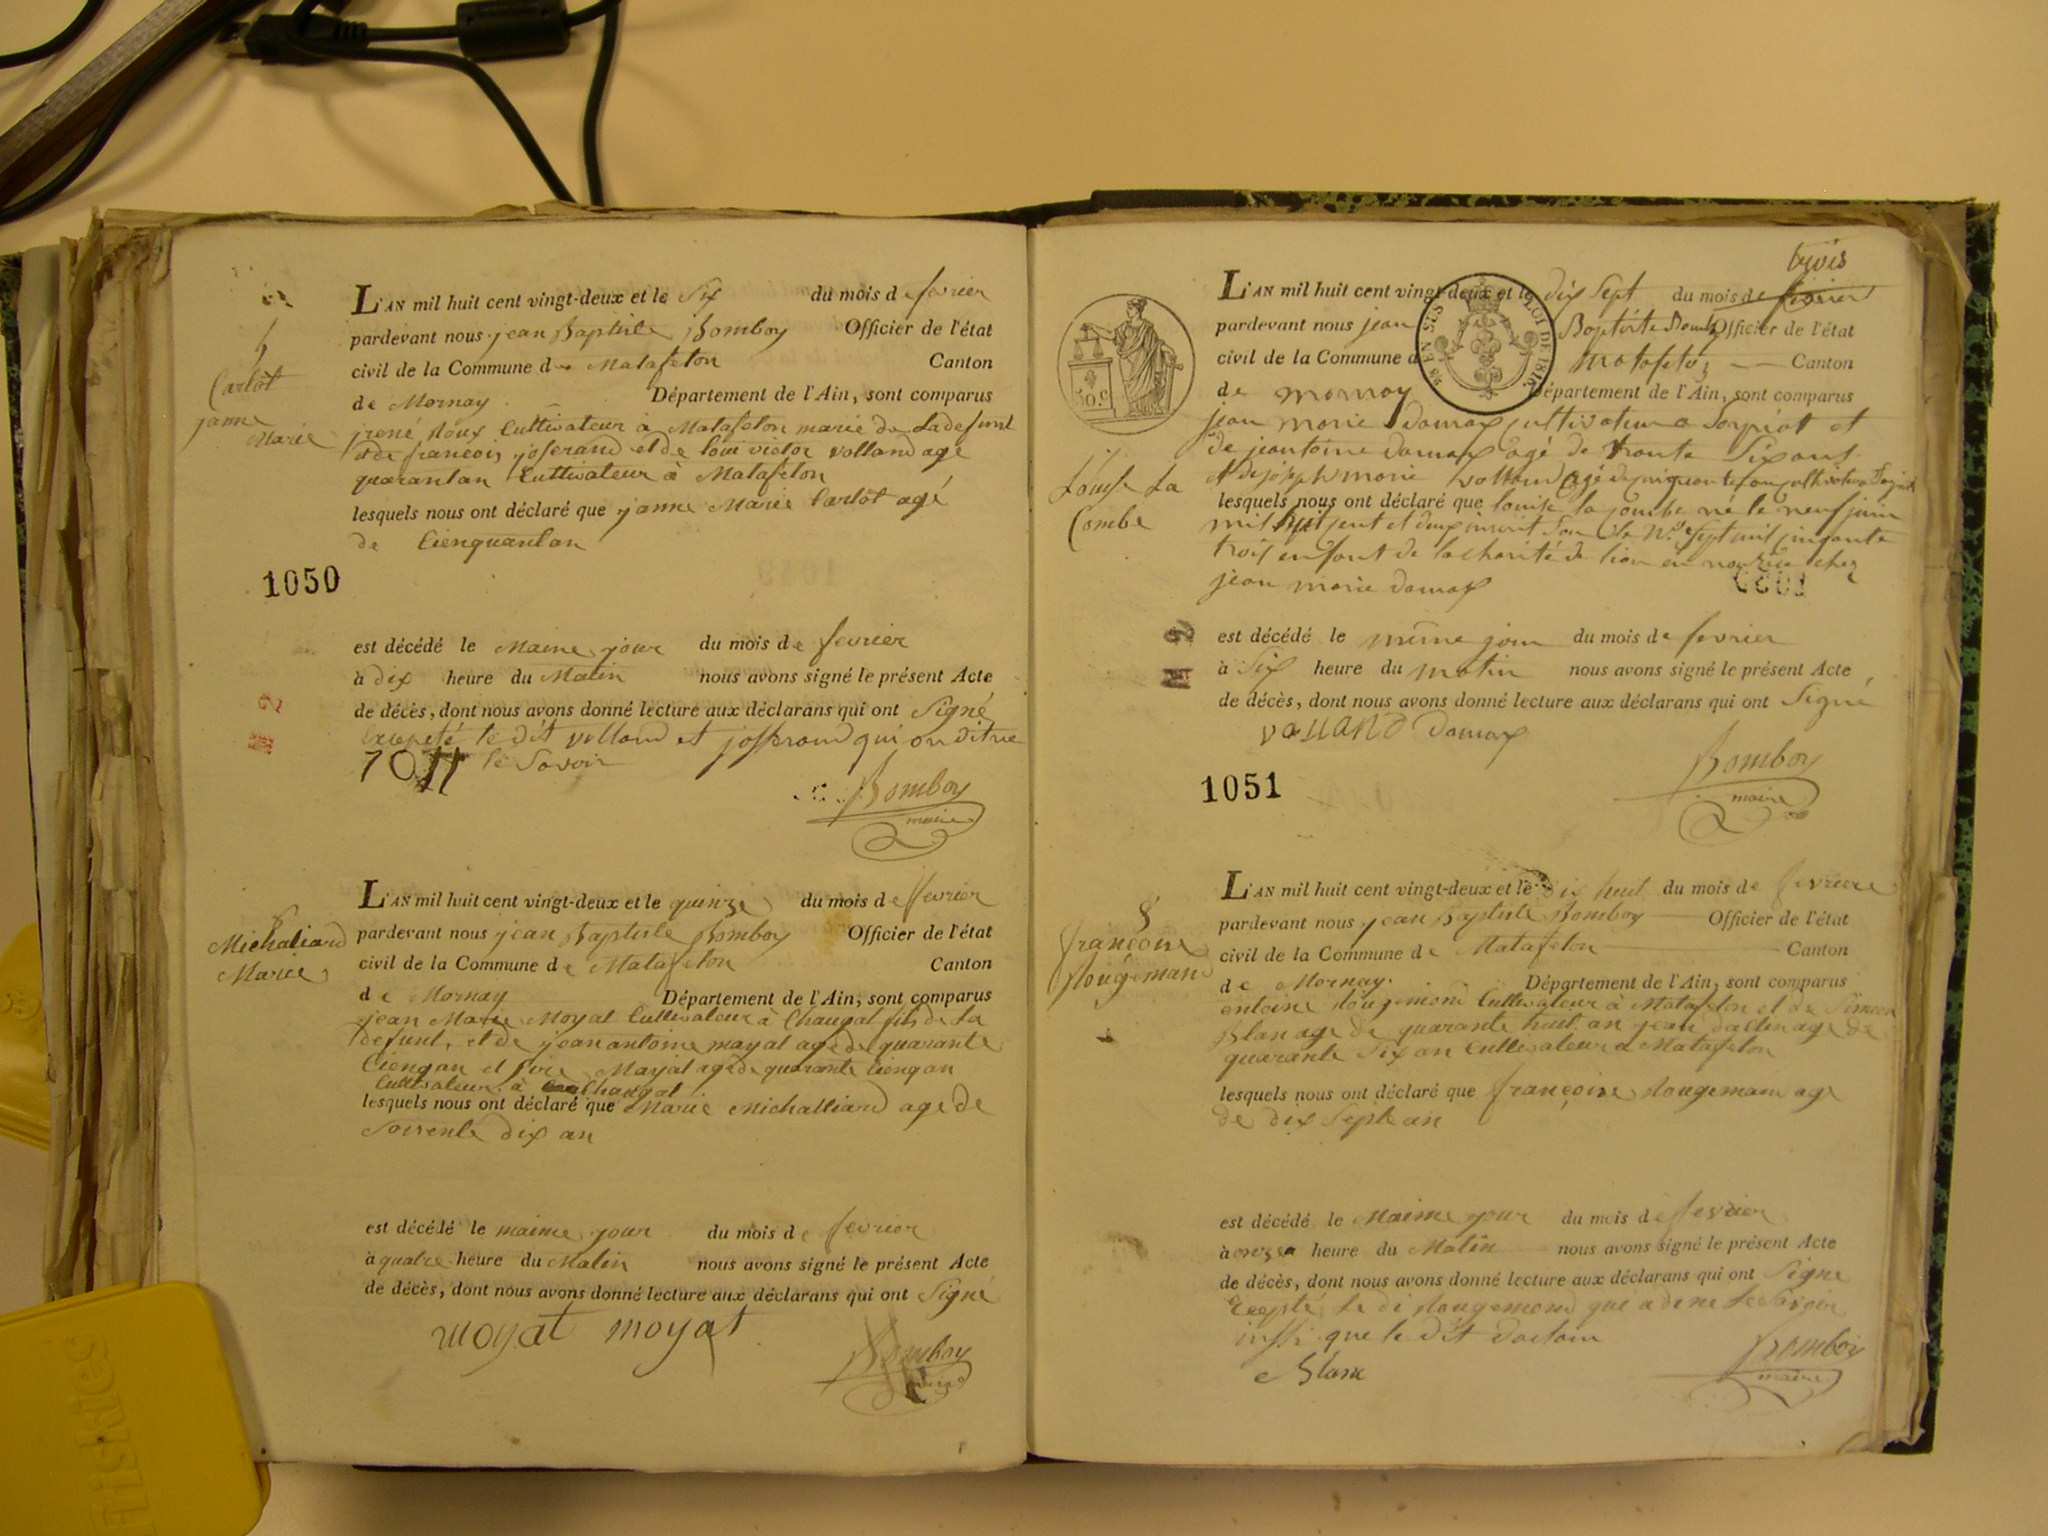 5
Carlot
janne
Marie
L'AN mil huit cent vingt-deux et le Six du mois de fevrier
pardevant nous jean Baptiste Bomboy Officier de l'état
civil de la Commune de Matafelon Canton
de Mornay Département de l'Ain, sont comparus
cultivateur à Matafelon marie de la defunt
et de francois joserand et de loui victor volland agé
quarantan Cultivateur à Matafelon
lesquels nous ont déclaré que janne Marie Carlot agé
de Cienquantan
1050
est décédé le maime jour du mois de fevrier
à dix heure du Matin nous avons signé le présent Acte
de décès, dont nous avons donné lecture aux déclarans qui ont Signé
excepté le dit volland et josserand qui on dit ne
le Savoir
Bomboy
maire
Michaliard
Marie
L'AN mil huit cent vingt-deux et le quinze du mois de fevrier
pardevant nous jean Baptiste Bomboy Officier de l'état
civil de la Commune de Matafelon Canton
de Mornay Département de l'Ain, sont comparus
jean Marie Moyat Cultivateur à Chougat fils de la
defunt, et de jean antoine mayat age de quarante
Ciengan et Moyat age de quarante Ciengan
Cultivateur à Chougat
lesquels nous ont déclaré que Marie Michalliard age de
Soirente dix an
est décédé le maime jour du mois de fevrier
à quatre heure du Matin nous avons signé le présent Acte
de décès, dont nous avons donné lecture aux déclarans qui ont Signé
moyat moyat
Bomboy
maire
trois
L'AN mil huit cent vingt-deux et le dix Sept du mois de fevrier
pardevant nous jean Baptiste Bomboy Officier de l'état
civil de la Commune de Matafelon Canton
de mornay Département de l'Ain, sont comparus
EN SUS ROI DE 1816
50. C
7
Louise La
Combe
jean marie Damax cultivateur a Corpiat et
de jeantoine damax agé de trante Six ans
et de joseph marie volland agé de cultivateur
lesquels nous ont déclaré que louise la combe né le neuf juin
mil huit cent et deux inscrit sou le N.º sept mil cinquante
trois enfant de la charité de lion en nourice chez
jean marie damax
est décédé le même jour du mois de fevrier
à Six heure du matin nous avons signé le présent Acte
de décès, dont nous avons donné lecture aux déclarans qui ont Signé
vollAND Damax
Bomboy
maire
1051
8
françoise
Rougeman
L'AN mil huit cent vingt-deux et le dix huit du mois de fevrier
pardevant nous jean Baptiste Bomboy Officier de l'état
civil de la Commune de Matafelon Canton
de Mornay. Département de l'Ain, sont comparus
entoine Rougemond Cultivateur à Matafelon et de Simeon
Blan age de quarante huit an jean daclin age de
quarante Six an Cultivateur a Matafelon
lesquels nous ont déclaré que françoise Rougeman age
de dix Septe an
est décédé le Maime jour du mois de fevrier
à onze heure du Matin nous avons signé le présent Acte
de décès, dont nous avons donné lecture aux déclarans qui ont Signe
Excepté le di Rougemond qui a di ne le Savoir
insi que le dit
Blanc
Bomboy
maire